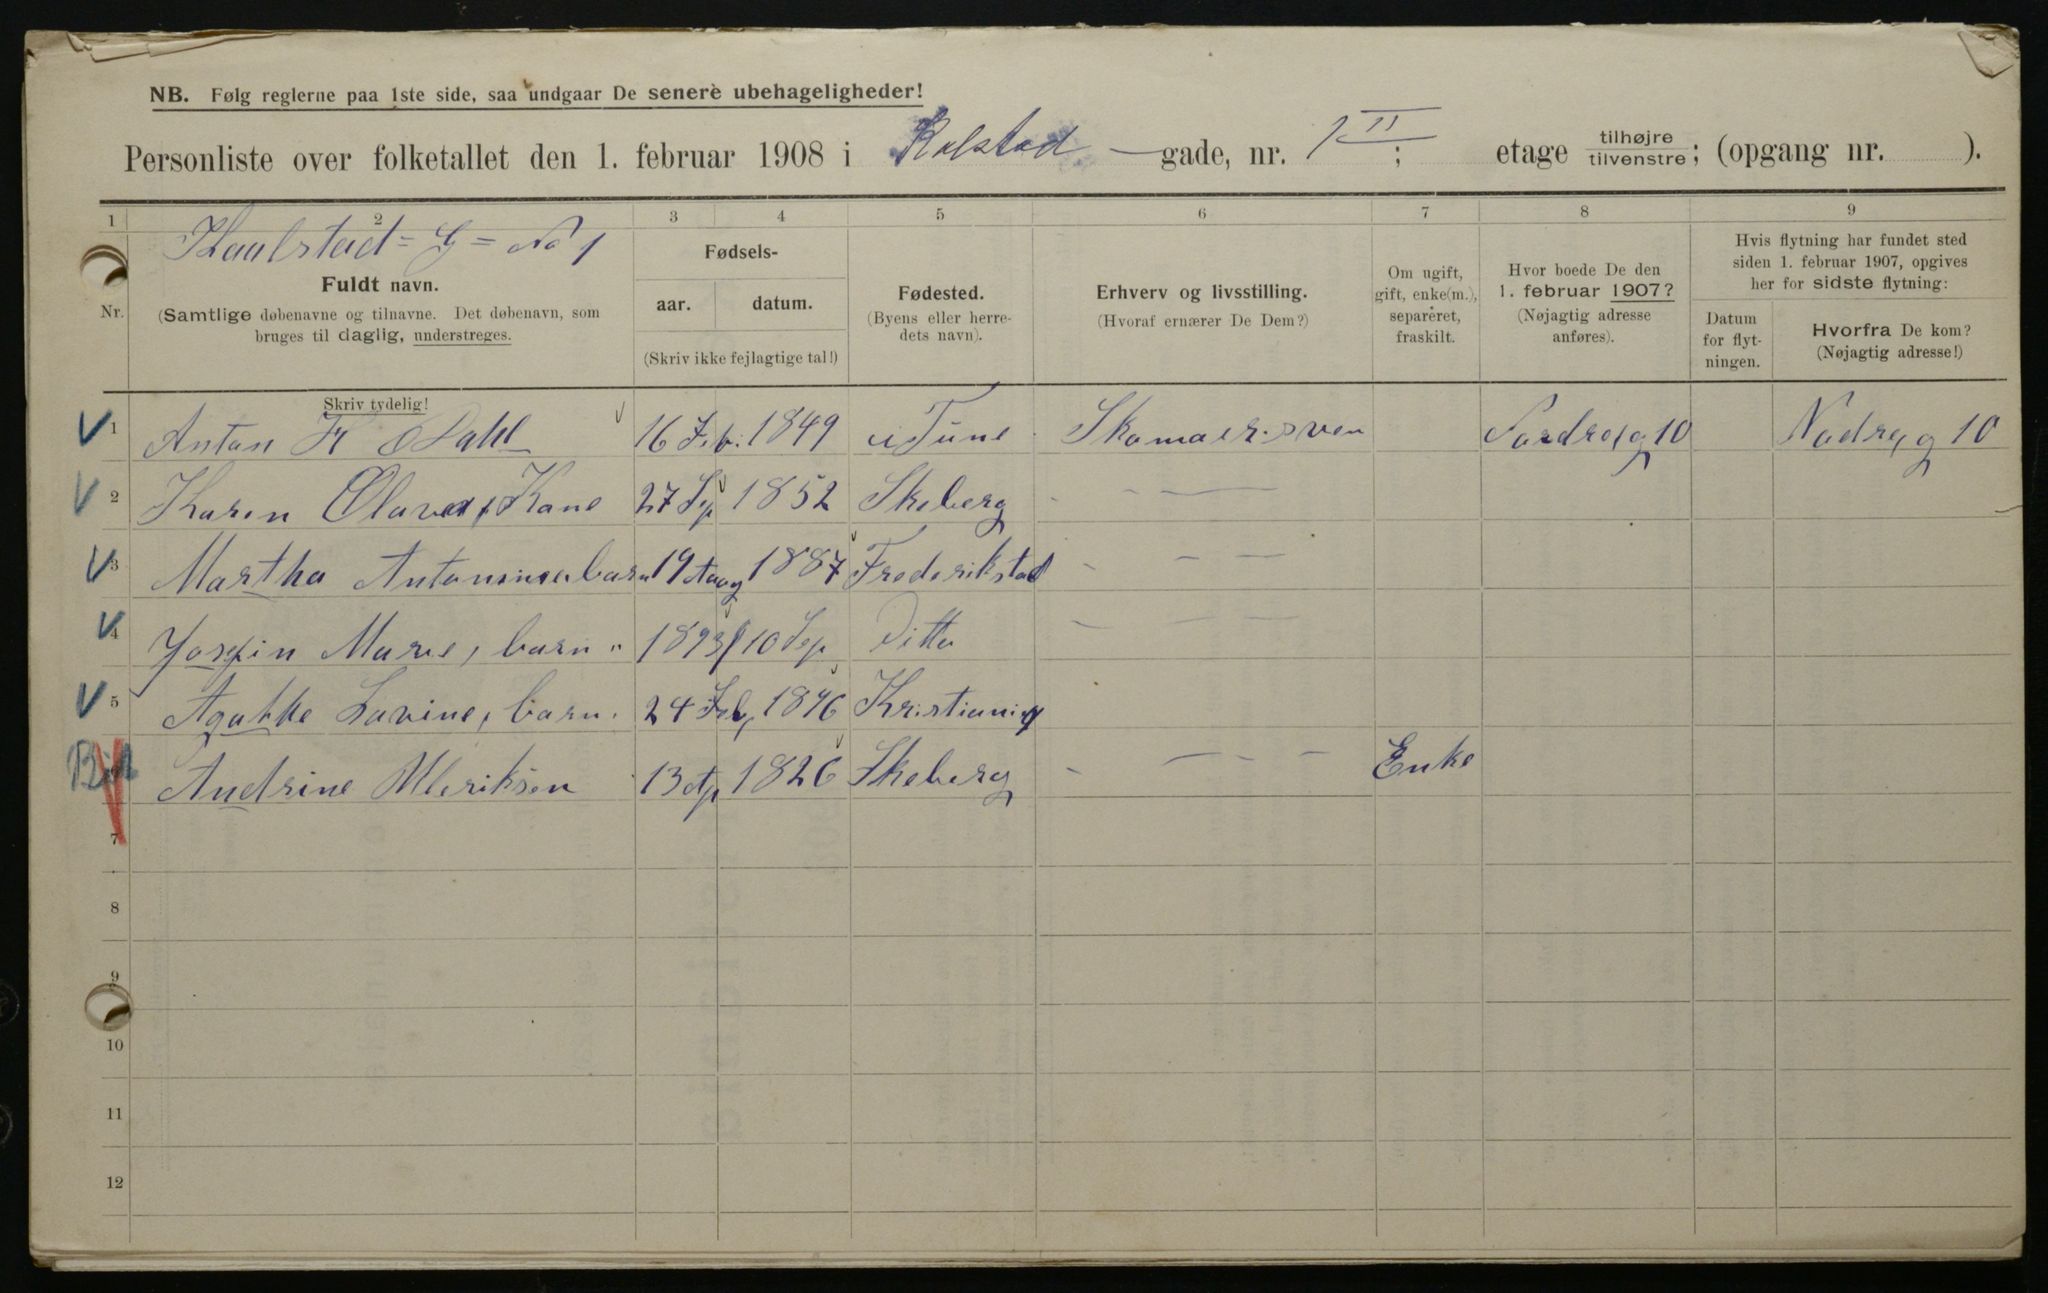 NB. Følg reglerne paa 1ste side, saa undgaar De senere ubehageligheder!
Personliste over folketallet den 1. februar 1908 i Kolstad — gade, nr. 1 II ; etage tilhøjre tilvenstre; (opgang nr. ).
1 2 3 4 5 6 7 8 9
Kaalstad = G = No 1
Nr.
Fuldt navn.
(Samtlige døbenavne og tilnavne. Det døbenavn, som
bruges til daglig, understreges.
Skriv tydelig!
Fødsels-
aar. datum.
(Skriv ikke fejlagtige tal!)
Fødested.
(Byens eller herre-
dets navn).
Erhverv og livsstilling.
(Hvoraf ernærer De Dem?)
Om ugift,
gift, enke(m.),
separeret,
fraskilt.
Hvor boede De den
1. februar 1907?
(Nøjagtig adresse
anføres).
Hvis flytning har fundet sted
siden 1. februar 1907, opgives
her for sidste flytning:
Datum
for flyt-
ningen.
Hvorfra De kom?
(Nøjagtig adresse!)
1 Anton H Dahl 16 Feb. 1849 i Tune Skomaersven g 10 g 10
2 Karen Olava, Kone 27 Sep 1852 Skeberg - - - —
3 Martha Antonine barn 19 Aaug 1887 Frederikstad - - —
4 Josefin Marie, barn " 1893 10 Sep Ditto - - — —
5 Agathe Lavine, barn. 24 Feb, 1896 Kristiania
Andrine Ulleriksen 13 Ap 1826 Skeberg - — - - Enke
7
8
9
10
11
12